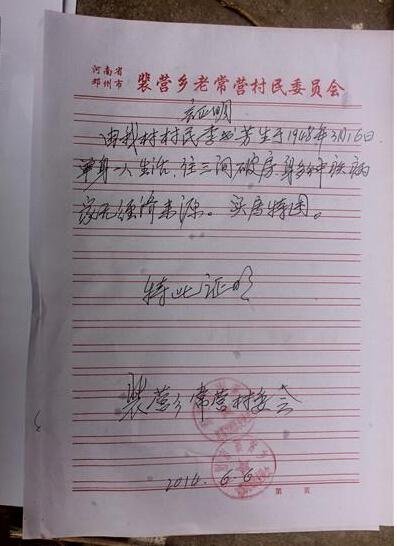 河南省
邓州市 裴营乡老常营村民委员会
证明
由我村村民李 芳生于1948年3月16日.
单身一人生活、住三间破房.身多种疾病
家无经济来源。实属特困。
特此证明
裴营乡常营村委会
2016.6.6
第 页